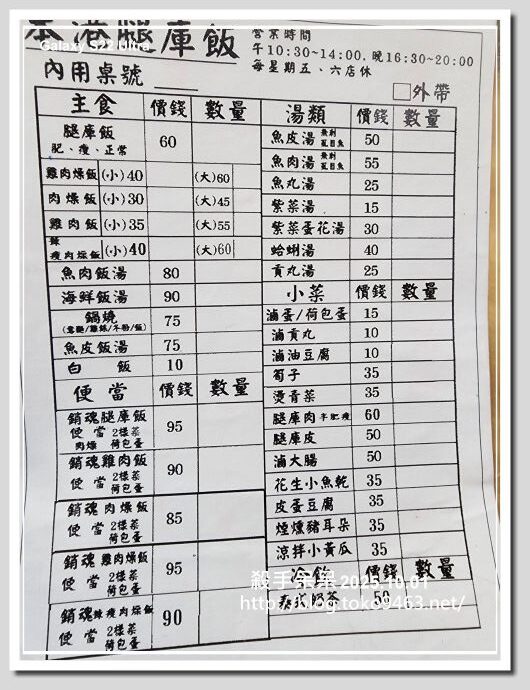 本港腿庫飯
營業時間
午10:30~14:00.晚16:30~20:00
每星期五、六店休
Galaxy S22 Ultra
內用桌號
□外帶
主食 價錢 數量
腿庫飯 60
肥、瘦、正常
雞肉燥飯 (小)40 (大)60
肉燥飯 (小)30 (大)45
雞肉飯 (小)35 (大)55
辣
瘦肉燥飯 (小)40 (大)60
魚肉飯湯 80
海鮮飯湯 90
鍋燒 75
魚皮飯湯 75
白飯 10
便當 價錢 數量
銷魂腿庫飯 95
便當 2樣菜
肉燥 荷包蛋
銷魂雞肉飯 90
便當 2樣菜
荷包蛋
銷魂肉燥飯 85
便當 2樣菜
荷包蛋
銷魂雞肉燥飯 95
便當 2樣菜
荷包蛋
銷魂辣瘦肉燥飯 90
便當 2樣菜
荷包蛋
湯類 價錢 數量
魚皮湯 無刺虱目魚 50
魚肉湯 無刺虱目魚 55
魚丸湯 25
紫菜湯 15
紫菜蛋花湯 30
蛤蜊湯 40
貢丸湯 25
小菜 價錢 數量
滷蛋/荷包蛋 15
滷貢丸 10
滷油豆腐 10
筍子 35
燙青菜 35
腿庫肉 半肥瘦 60
腿庫皮 50
滷大腸 50
花生小魚乾 35
皮蛋豆腐 35
煙燻豬耳朵 35
涼拌小黃瓜 35
冷飲 價錢 數量
泰式奶茶 50
殺手奈奈 2025.10.01
https://blog.toko9463.net/